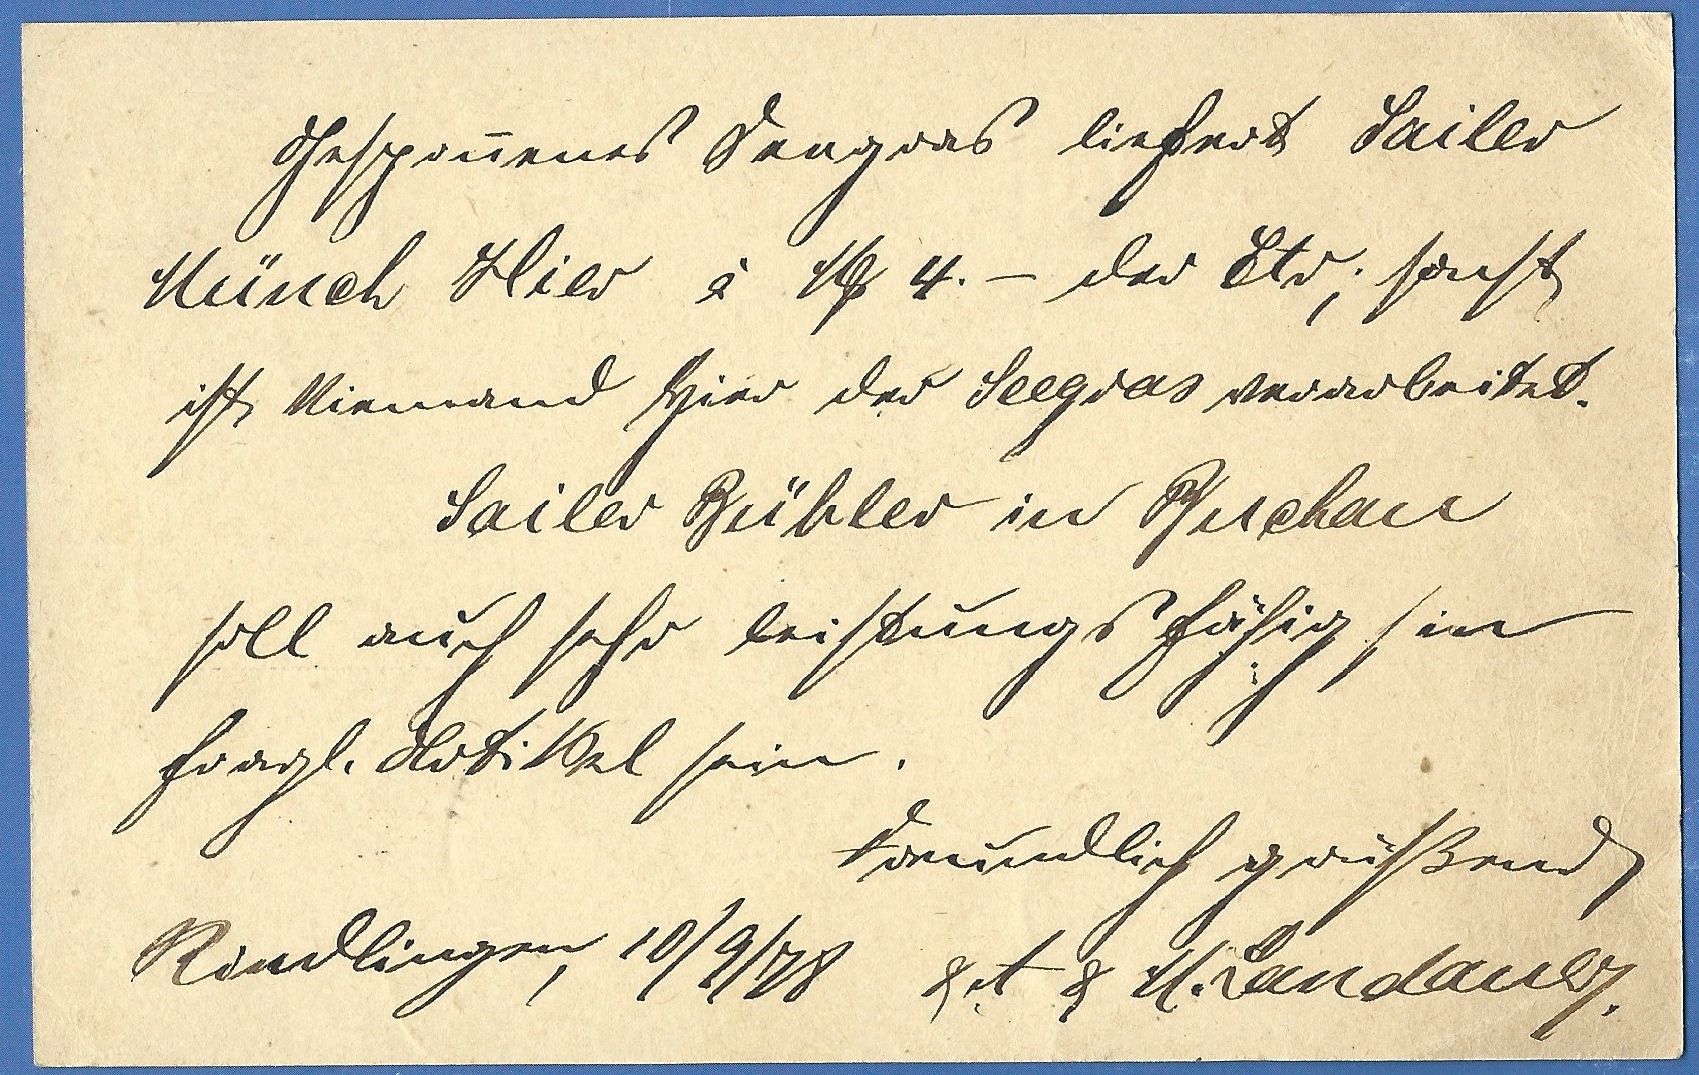 Gesponnenes Seegras liefert Sailer
Münch Hier à M 4.- der Ctr; sonst
ist Niemand hier der Seegras verarbeitet.
Sailer Bühler in Buchau
soll auch sehr leistungsfähig im
fragl. Artikel sein.
Freundlich grüßend
Riedlingen, 10/9/78 & M. Landauer.